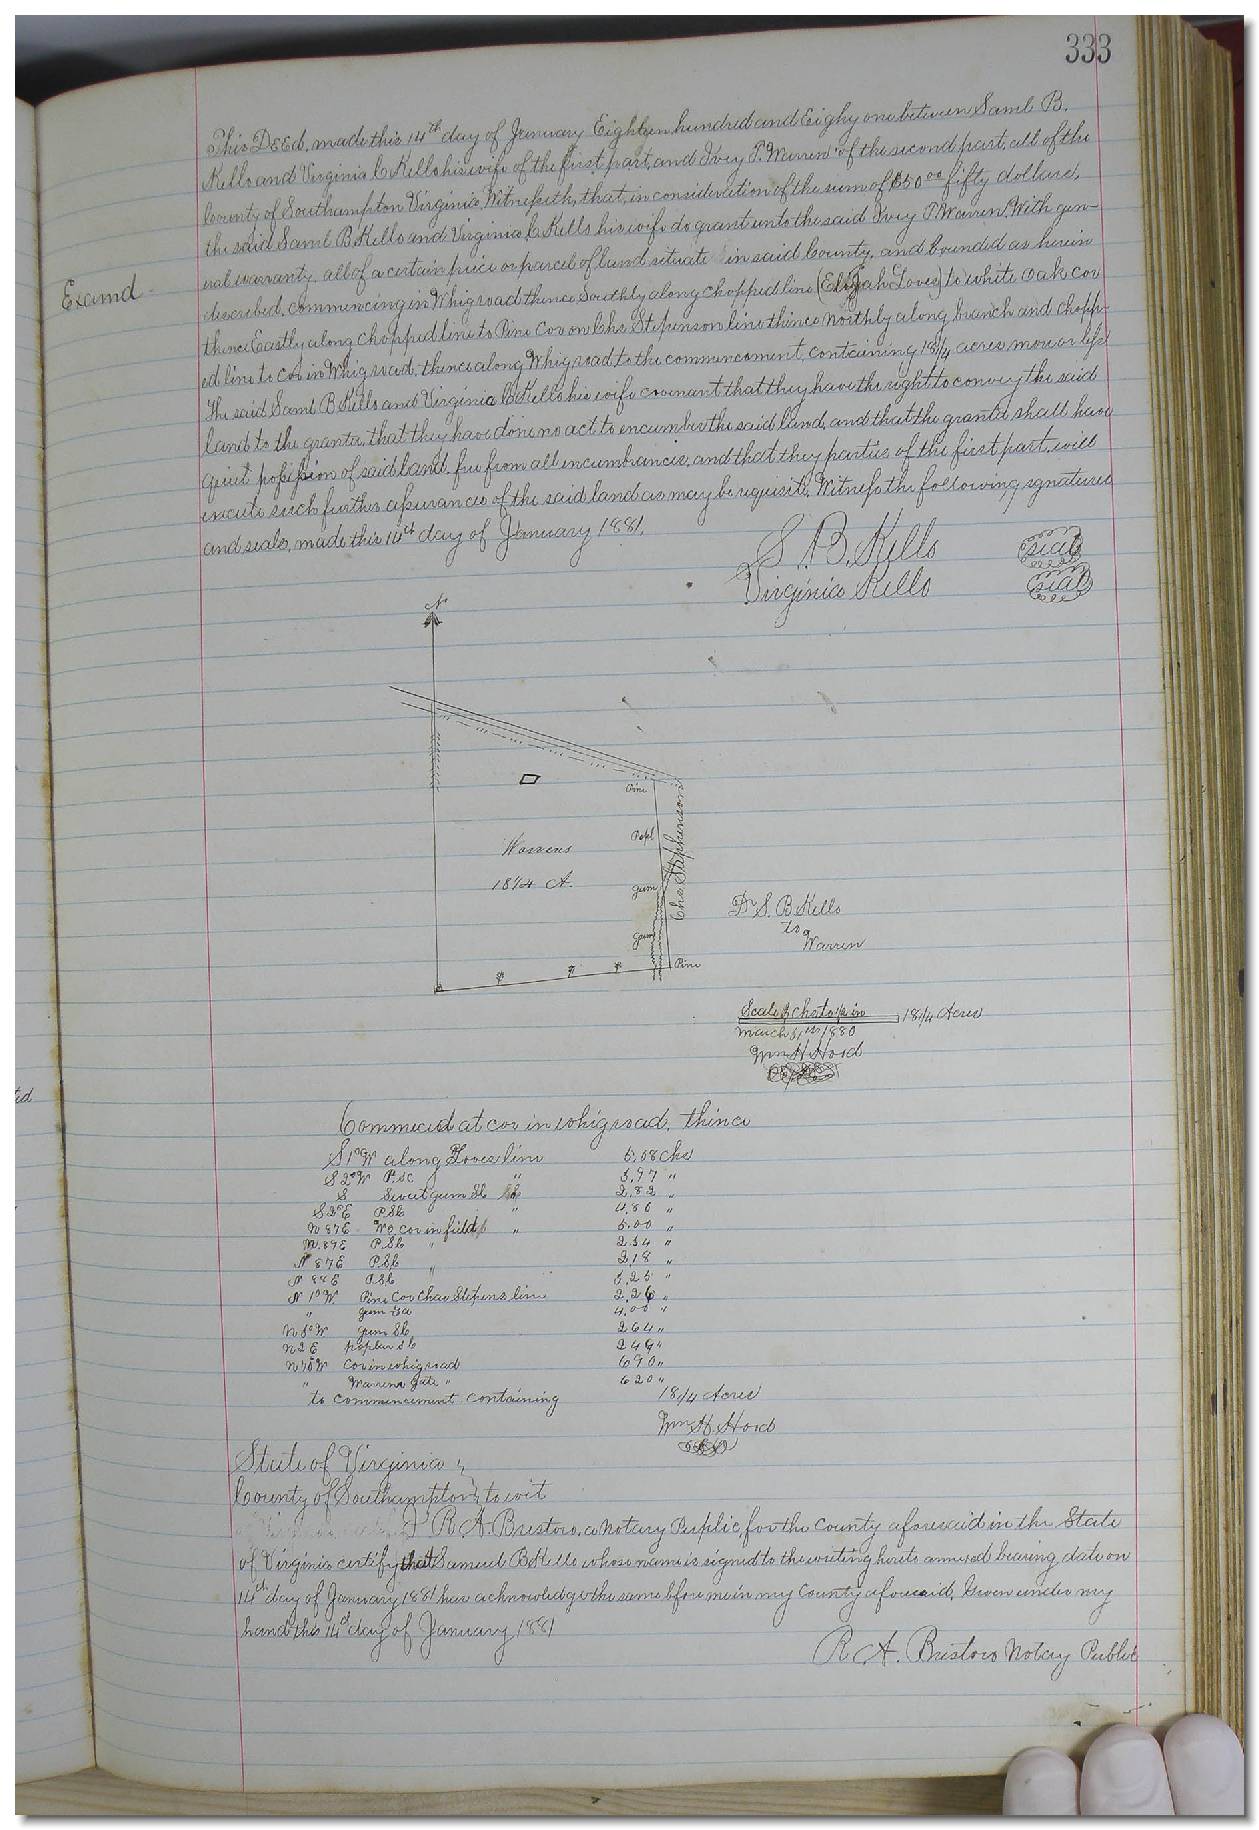 333
This Deed, made this 14th day of January Eighteen hundred and Eighy one between Saml B.
Kello and Virginia C Kello his wife of the first part, and Ivey P. Warren of the second part, all of the
County of Southampton Virginia, Witnesseth, that, in consideration of the sum of $50 00 fifty dollars,
the said Saml B Kello and Virginia C Kello his wife do grant unto the said Ivey P Warren, With gen-
eral warranty, all of a certain piece or parcel of land situate in said County, and bounded as herein
Examd
described, commencing in Whig road thence Southly along chopped line (Elijah Loves) to white oak cor
thence Eastly along chopped line to Pine cor on Chs Stephenson line thence northly along branch and chopp-
ed line to cor in Whig road, thence along Whig road, to the commencement, containing 18 1/4 acres more or less
The said Saml B Kello and Virginia C Kello his wife covenant that they have the right to convey the said
land to the grantee, that they have done no act to encumber the said land, and that the grantee shall have
quiet possession of said land, free from all encumbrances, and that they parties of the first part, will
execute such further assurances of the said land as may be requisite, Witness the following signatures
and seals, made this 14th day of January 1881.
S. B. Kello seal
Virginia Kello seal
N
Pine
Popl
Chs Stephenson
Warrens
18 1/4 A.
gum
Dr S. B Kello
to
Warren
gum
Pine
Scale 18 1/4 Acres
March 1880
Wm H Hood
Commenced at cor in whig road, thence
S 1° W along Loves line 5.08 chs
S 2° W P.sc " 5,97 "
S Sweet gum Sb 2,82 "
S 2° E P Sb 4.86 "
N 87 E Wo cor in field " 5.00 "
N. 89 E P. Sb " 2.54 "
N 87 E P. Sb 2,18 "
N 88 E P. Sb " 5,25 "
N 1° W. Pine Cor Chas Stephens line 2,26 "
" gum 4.00 "
N 5° W gum Sb 2 64 "
N 2 E poplar Sb 2 46 "
N 75° W cor in whig road 6 90 "
" Warrens Gate " 6 20 "
to commencement containing 18 1/4 Acres
Wm H. Hood
State of Virginia
County of Southampton to wit
I R A. Bristow, a Notary Public, for the County aforesaid in the State
of Virginia certify that Samuel B Kello whose name is signed to the writing hereto annexed bearing date on
14th day of January 1881 has acknowledge the same before me in my County aforesaid, Given under my
hand this 14th day of January 1881
R A. Bristow Notary Public